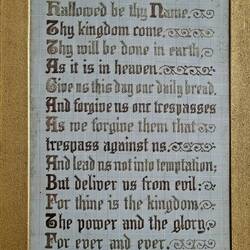 Hallowed be thy Name.
Thy kingdom come,
Thy will be done in earth,
As it is in heaven.
Give us this day our daily bread.
And forgive us our trespasses
As we forgive them that
trespass against us.
And lead us not into temptation;
But deliver us from evil:
For thine is the kingdom
The power and the glory
For ever and ever.